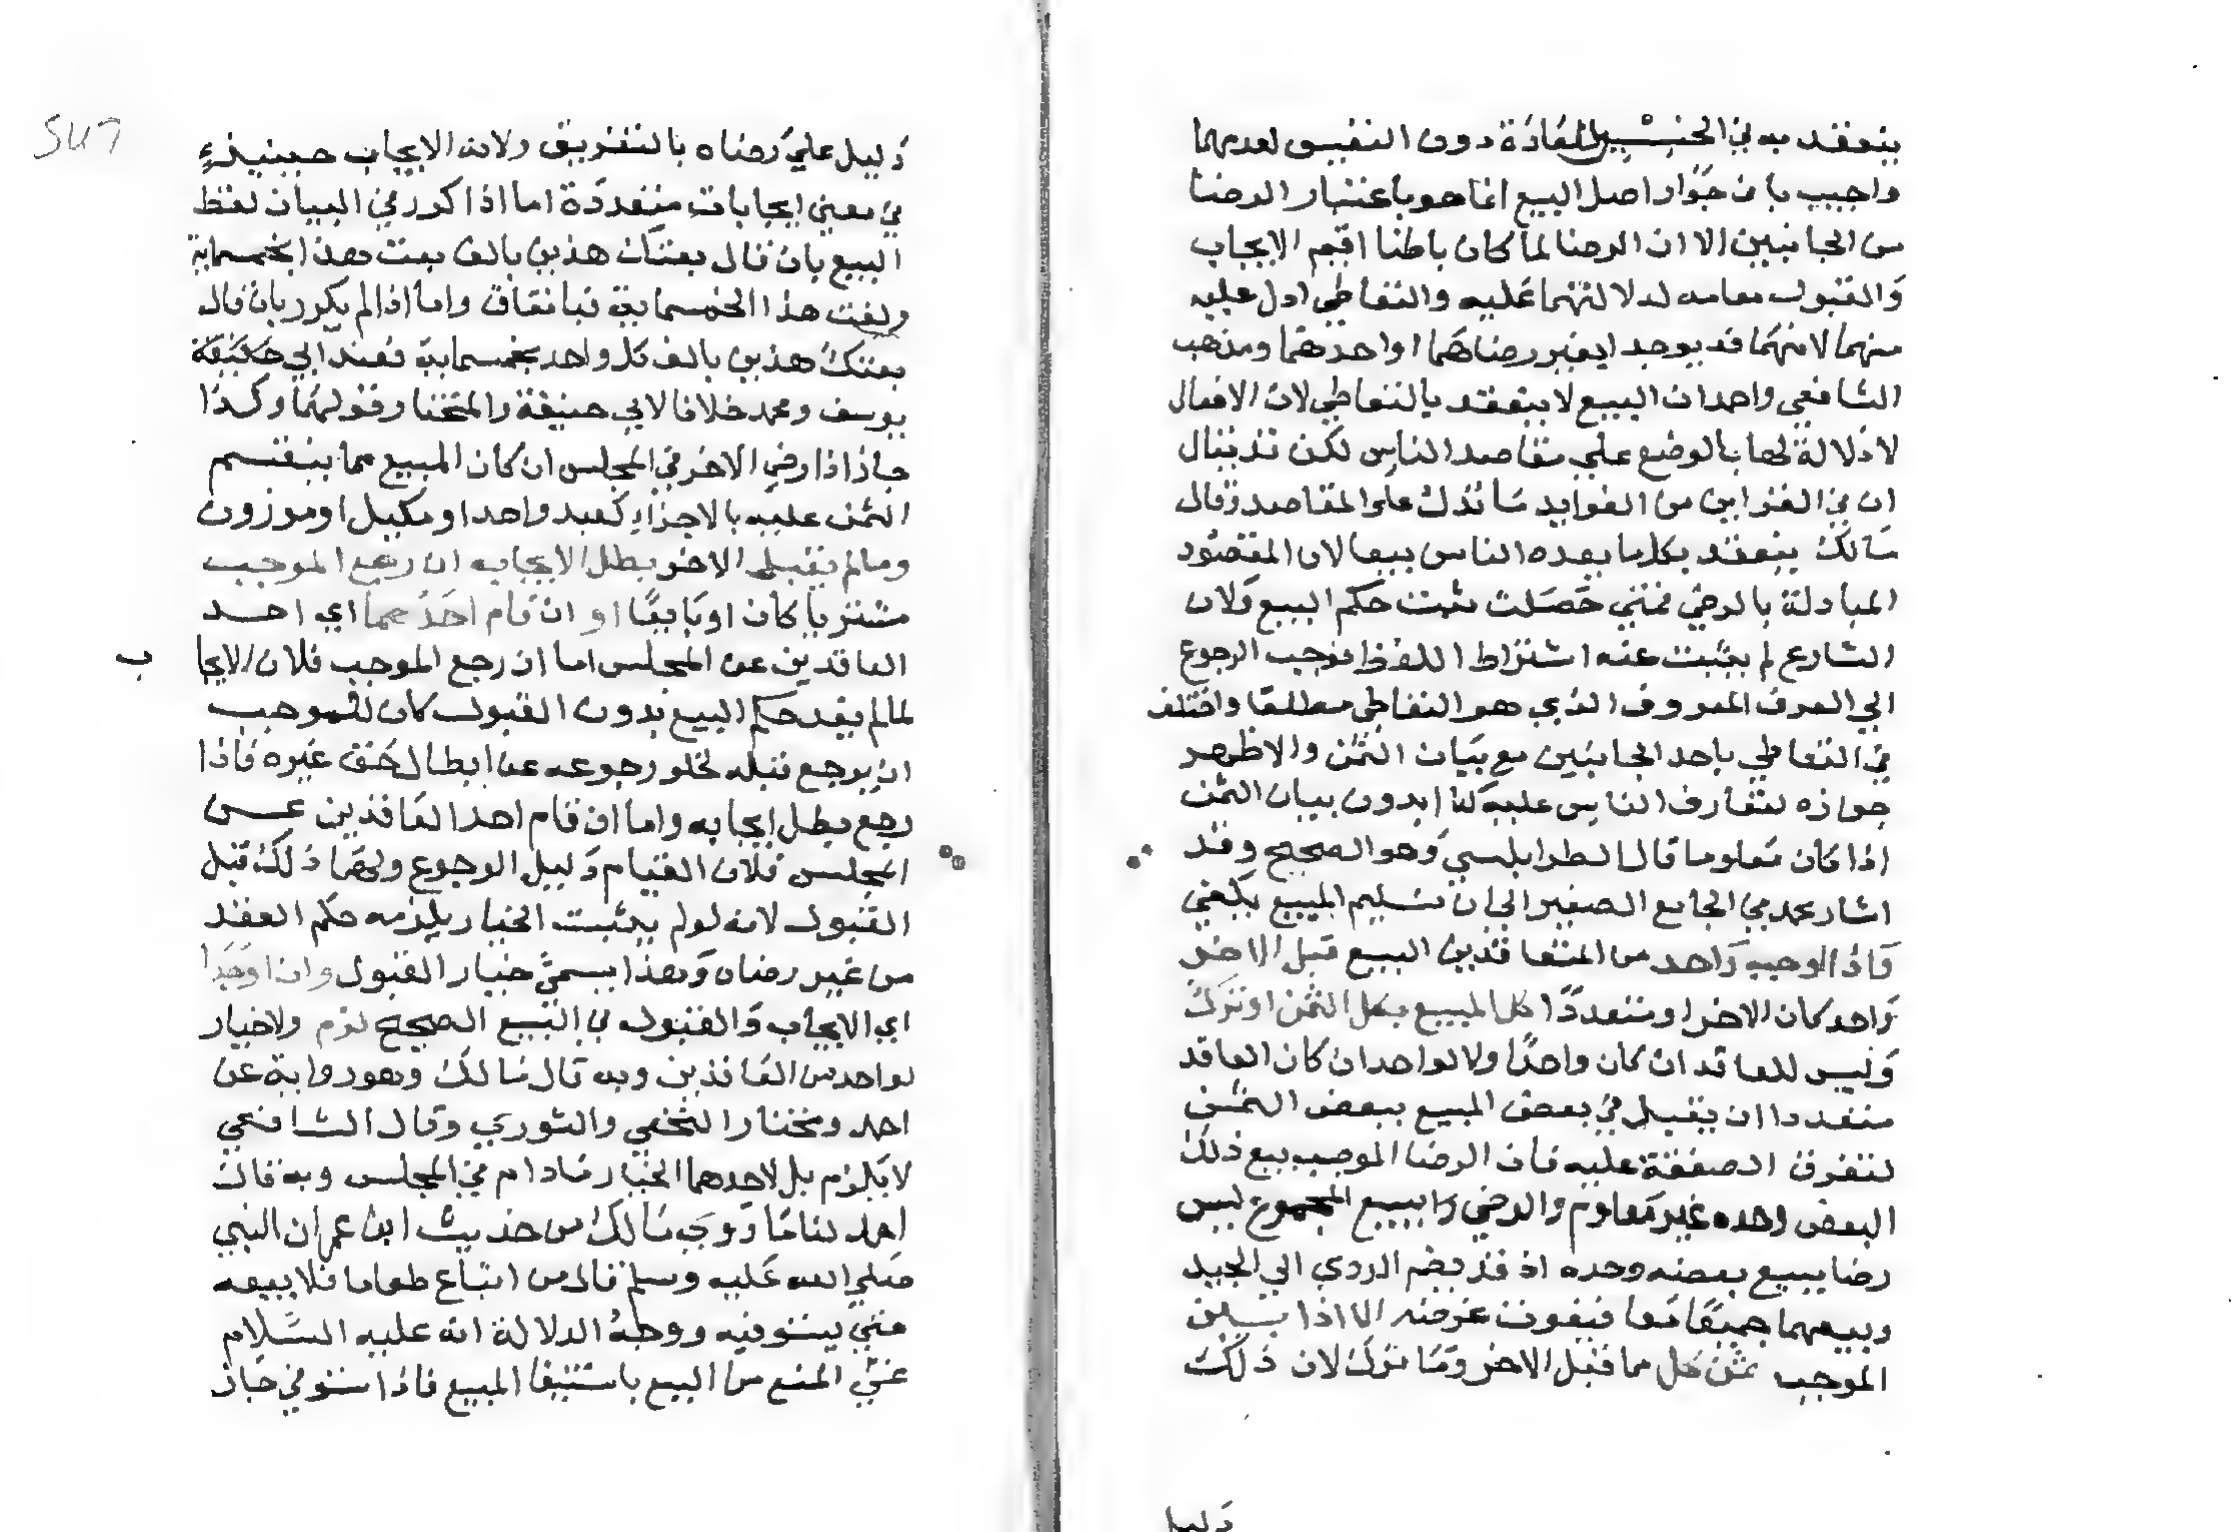 ينعقد به في الخسيس للعادة دون النفيس لعدمهما
واجيب بان جواز اصل البيع انما هو باعتبار الرضا
من الجانبين الا ان الرضا لما كان باطنا اقيم الايجاب
والقبول مقامه لدلالتهما عليه والتعاطي ادل عليه
منهما لانهما قد يوجد ا بغير رضاهما او احدهما ومذهب
الشافعي واحد ان البيع لا ينعقد بالتعاطي لان الافعال
لا دلالة لها بالوضع على مقاصد الناس لكن قد يقال
ان في القراين من الفوايد ما تدل على المقاصد وقال
مالك ينعقد بكل ما يعده الناس بيعا لان المقصود
المبادلة بالرضي فمتي حصلت ثبت حكم البيع ولان
الشارع لم يثبت عنه اشتراط اللفظ فوجب الرجوع
الي العرف المعروف الذي هو التعاطي مطلقا واختلف
في التعاطي باحد الجانبين مع بيان الثمن والاظهر
جوازه لتعارف الناس عليه كذا بدون بيان الثمن
اذا كان معلوما قال الطرابلسي وهو الصحيح وقد
اشار محمد في الجامع الصغير الى ان تسليم المبيع يكفي
فاذا اوجب واحد من المتعاقدين البيع قبل الاخر
واحد كان الاخر او متعددا كل المبيع بكل الثمن او ترك
وليس للعاقد ان كان واحدا ولا لواحد ان كان العاقد
متعددا ان يقبل في بعض المبيع ببعض الثمن
لتفرق الصفقة عليه فان الرضا الموجب ببيع ذلك
البعض وحده غير معلوم والرضي ببيع المجموع ليس
رضا ببيع بعضه وحده اذ قد يضم الردي الي الجيد
وبيعهما جميعا معا فيفوت غرضه الا اذا بين
الموجب ثمن كل مما قبل الاخر وما ترك لان ذلك
دليل
دليل علي رضاه بالتفريق ولان الايجاب حينيذ
في معني ايجابات متعددة اما اذا كرر في البيان لفظ
البيع بان قال بعتك هذين بالف بعت هذا بخمسماية
وبعت هذا بخمسماية فباتفاق واما اذا لم يكرر بان قال
بعتك هذين بالف كل واحد بخمسماية فعند ابي
يوسف ومحمد خلافا لابي حنيفة والمختار قولهما وكذا
جاز اذا رضي الاخر في المجلس ان كان المبيع مما ينقسم
الثمن عليه بالاجزاء كعبد واحد او مكيل او موزون
وما لم يقبل الاخر بطل الايجاب ان رجع الموجب
مشتريا كان او بايعا او ان قام احدهما اي احد
العاقدين عن المجلس اما ان رجع الموجب فلان الايجاب
لما لم يفد حكم البيع بدون القبول كان للموجب
ان يرجع قبله لخلو رجوعه عن ابطال حق غيره فاذا
رجع بطل ايجابه واما ان قام احد العاقدين عن
المجلس فلان القيام دليل الرجوع ولهما ذلك قبل
القبول لانه لو لم يثبت الخيار يلزمه حكم العقد
من غير رضاه وهذا يسمي خيار القبول واذا وجدا
اي الايجاب والقبول في البيع الصحيح لزم ولا خيار
لواحد من العاقدين وبه قال مالك وهو رواية عن
احمد ومختار النخعي والثوري وقال الشافعي
لا يلزم بل لاحدهما الخيار ما داما في المجلس وبه قال
احمد لنا ما روي مالك من حديث ابن عمر ان النبي
صلي الله عليه وسلم قال من ابتاع طعاما فلا يبيعه
حتي يستوفيه ووجه الدلالة انه عليه السلام
غيي المنع من البيع باستيفا المبيع فاذا استوفي جاز